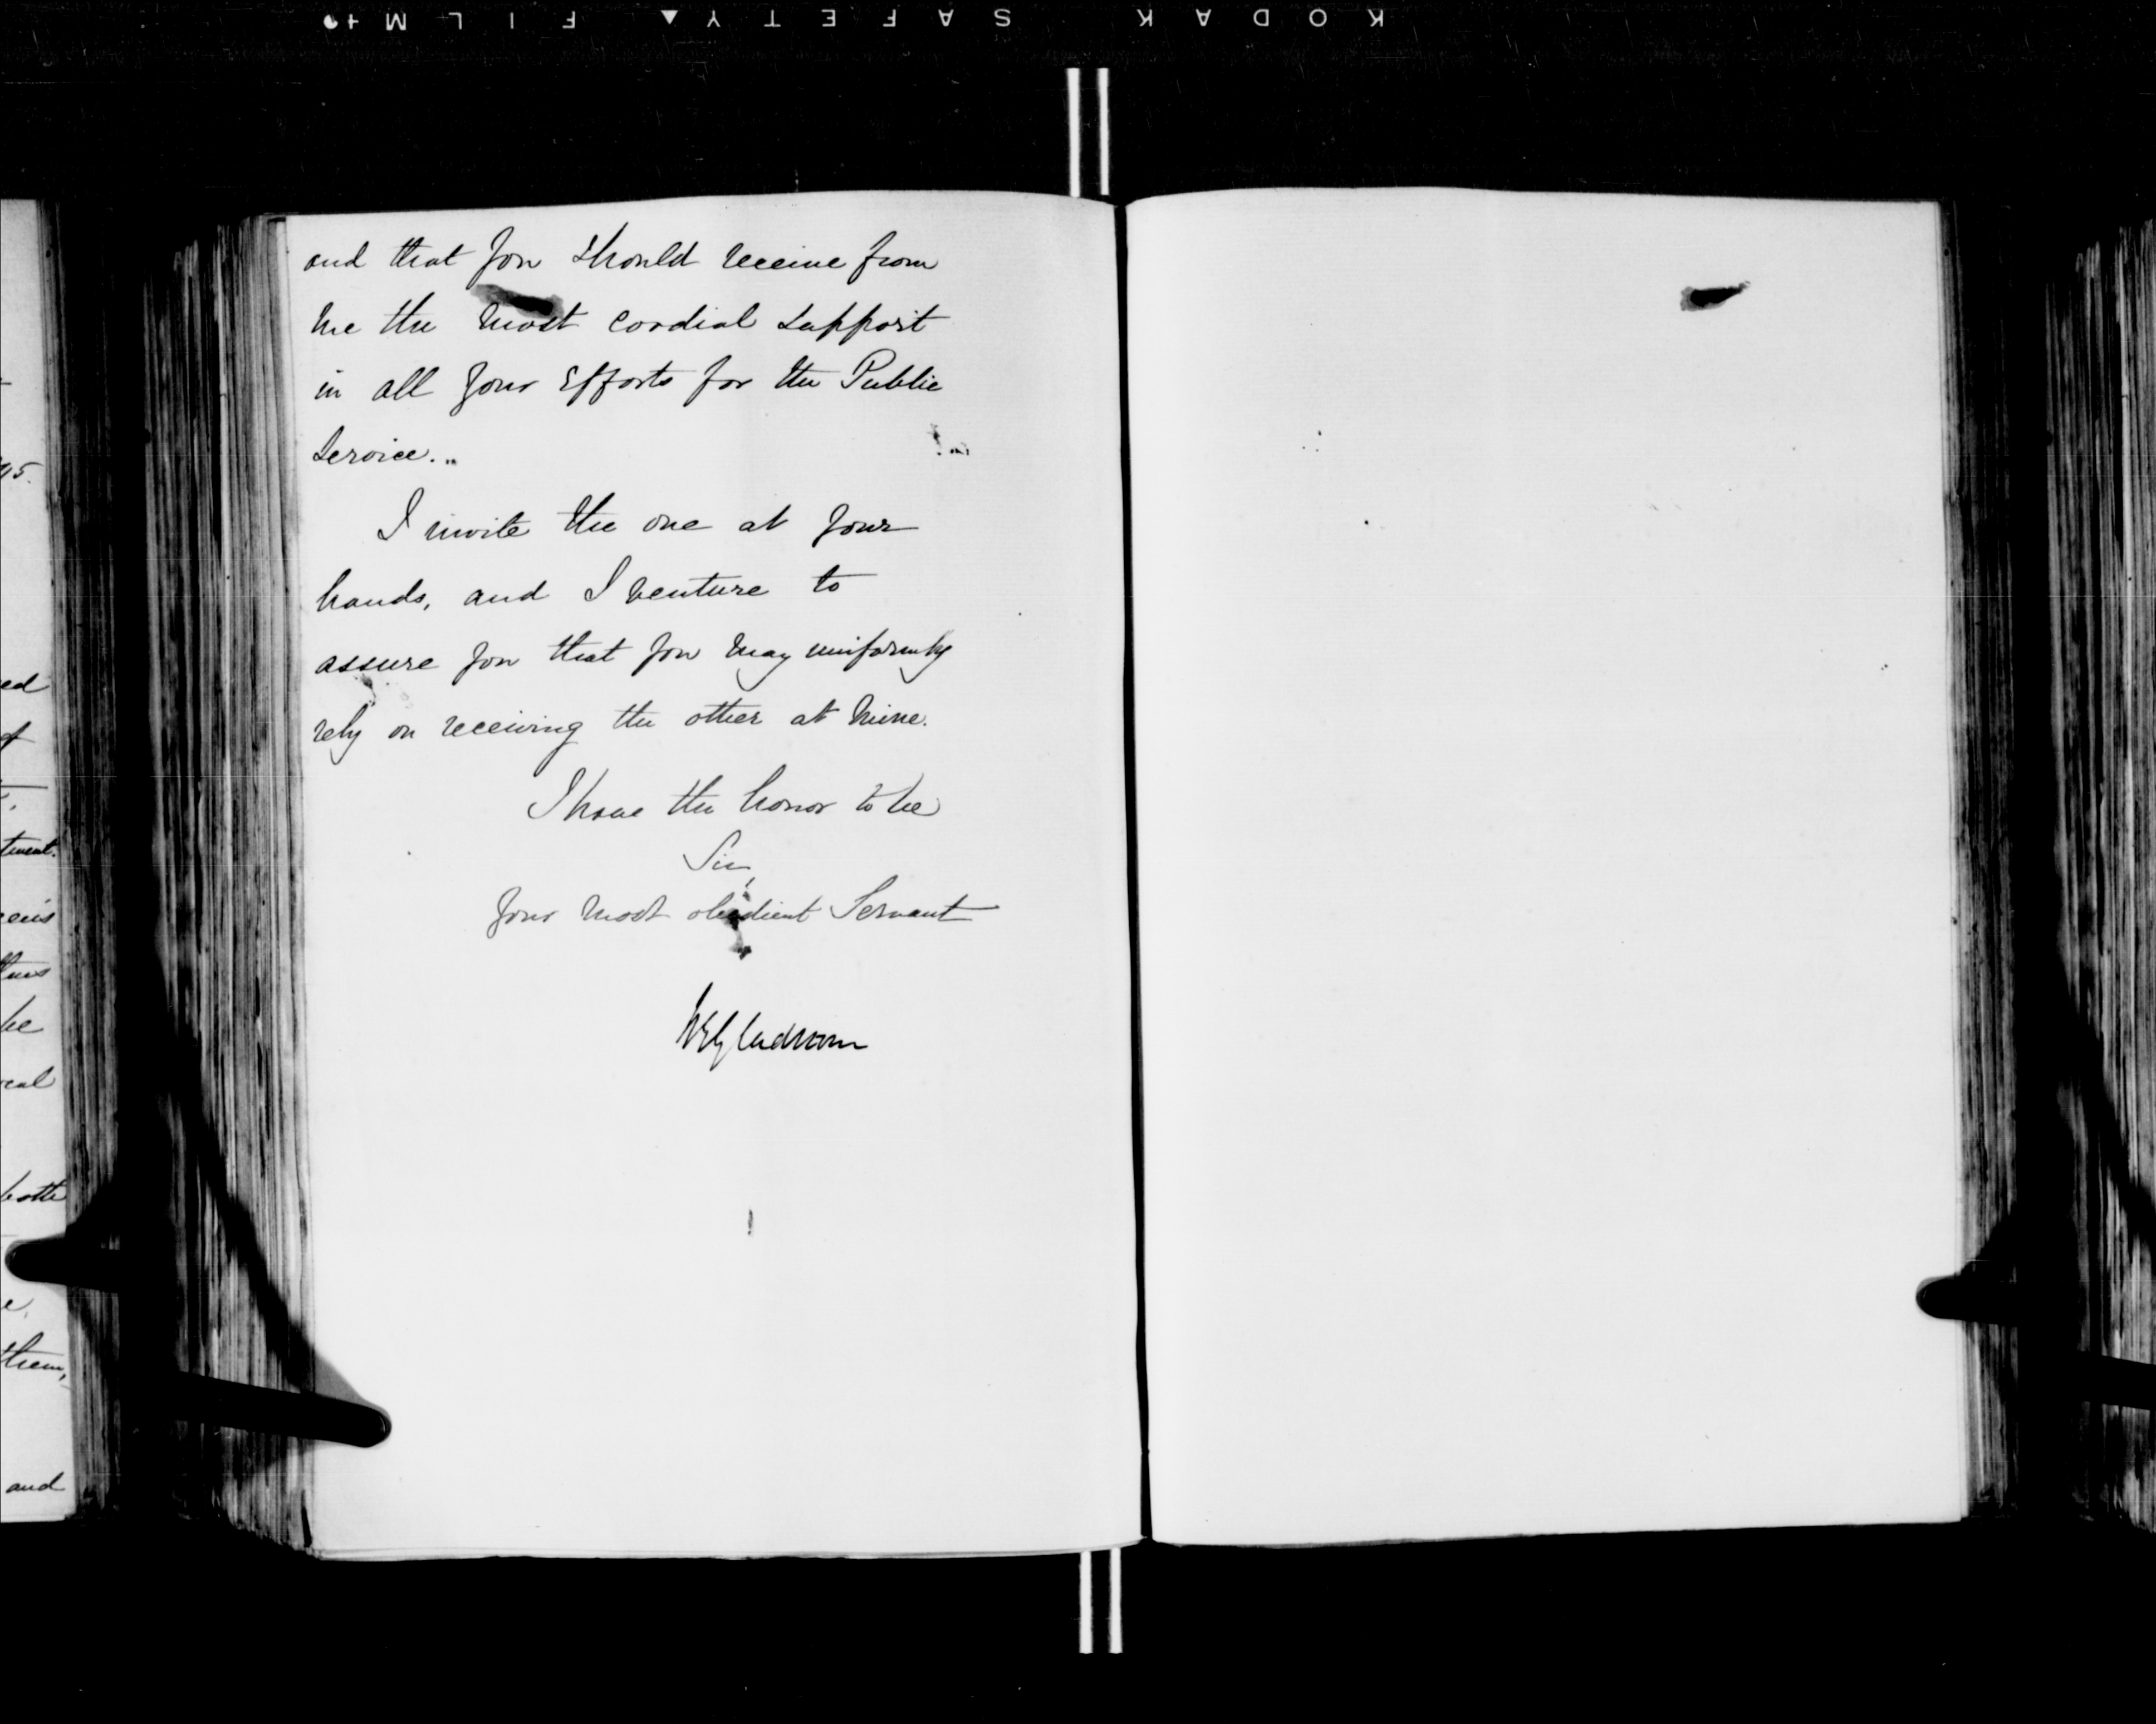 KODAK SAFETY FILM
and that you should receive from
me the most cordial support
in all your efforts for the Public
Service.
I invite the one at your
hands, and I venture to
assure you that you may uniformly
rely on receiving the other at mine.
I have the honor to be
Sir,
Your most obedient Servant
WEGladstone
ed
tment.
he
both
them,
and